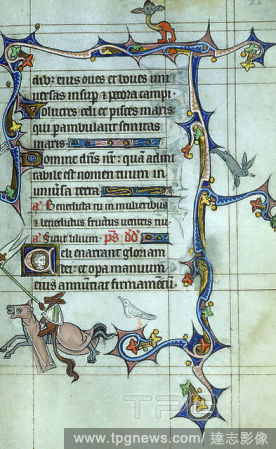 dib; eius oves et boves uni
uersas insup et pecora campi.
Volucres celi et pisces maris
qui pambulant semitas
maris.
Domine dñs nr̃: quā admi
rabile est nomen tuum in
uniũsa terra.
a᷑ Benedicta tu in mulieribus
et benedictus fructus uentris tui
a᷑ Sicut lilium. ps̃ dd̃
Celi enarrant gloriam
dei: et opa manuum
eius annũciat firmamentũ.
TPG
www.tpgnews.com/ 達志影像